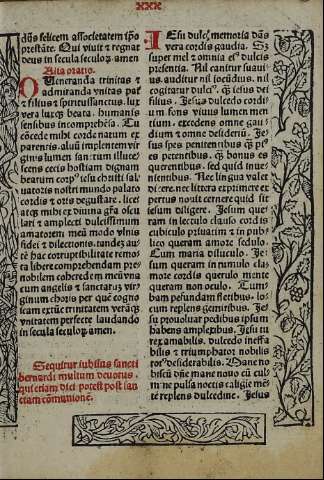 xxx
dūs felicem associetatem ip̄o
prestāte. Qui viuit et regnat
deus in secula seculoꝝ. amen
Alia oratio.
O Ueneranda trinitas ⁊
admiranda vnitas pat̄
⁊ filius ⁊ spiritussanctus. lux
vera lucꝫ beata. humanis
sensibus incomprehēsa. Tu
cōcede mihi corde natum ex
parentis. aluū implentem vir
ginis lumen sanctum
scens cecis hostiam dignam
beatum corpꝰ iesu christi sal
uatoris nostri mundo palato
cordis ⁊ oris degustare. licet
ex diuina grā oscu
lari ⁊ amplecti dulcissimum
amatorem meū modo vinis
fidei ⁊ dilectionis. tandeꝫ au
tē hac corruptibilitate remo
ta libere comprehendam pre
nobilem
cum angelis ⁊ sanctaruꝫ vir
ginum choris per quē cogno
scam extūc trinitatem veramꝗꝫ
vnitatem perfecte laudando
in secula seculoꝝ amen.
Sequitur iubilus sancti
bernardi multum deuotus.
qui etiam dici potest post san
ctam cōmunionē.
IEsu dulcꝫ memoria dās
vera cordis gaudia. Sꝫ
super mel ⁊ omnia eiꝰ dulcis
presentia. Nil canitur suaui
us. auditur nil iocūdius. nil
cogitatur dulciꝰ. ꝗ̄ iesus dei
filius. Jesus dulcedo cordiū
um fons viuus lumen men
tium. excedens omne gau
dium ⁊ omne desideriū. Je
sus spes penitentibus ꝗ̄ piꝰ
es petentibus. ꝗ̄ bonus es
querentibus. sed quid inue
nientibus. Nec lingua valet
dicere. nec littera exprimere ex
pertus nouit cernere quid sit
iesum diligere. Jesum quer
ram in lectulo clauso cordis
cubiculo priuatim ⁊ in pub
lico queram amore sedulo.
Cum maria diluculo. Je
sum queram in tumulo. cla
more cordis querulo mente
queram non oculo. Tum
bam pefundam fletibus. lo
cum replens gemitibus. Je
su prouoluar pedibus ipsiꝰ
habens amplexibus. Jesu tu
rex amabilis. dulcedo ineffa
bilis ⁊ triumphator nobilis
totꝰ desiderabilis. Mane no
biscū dn̄e mane nouo cū lum̄
ne pulsa noctis caligie mē
tē replens dulcedine. Jesus